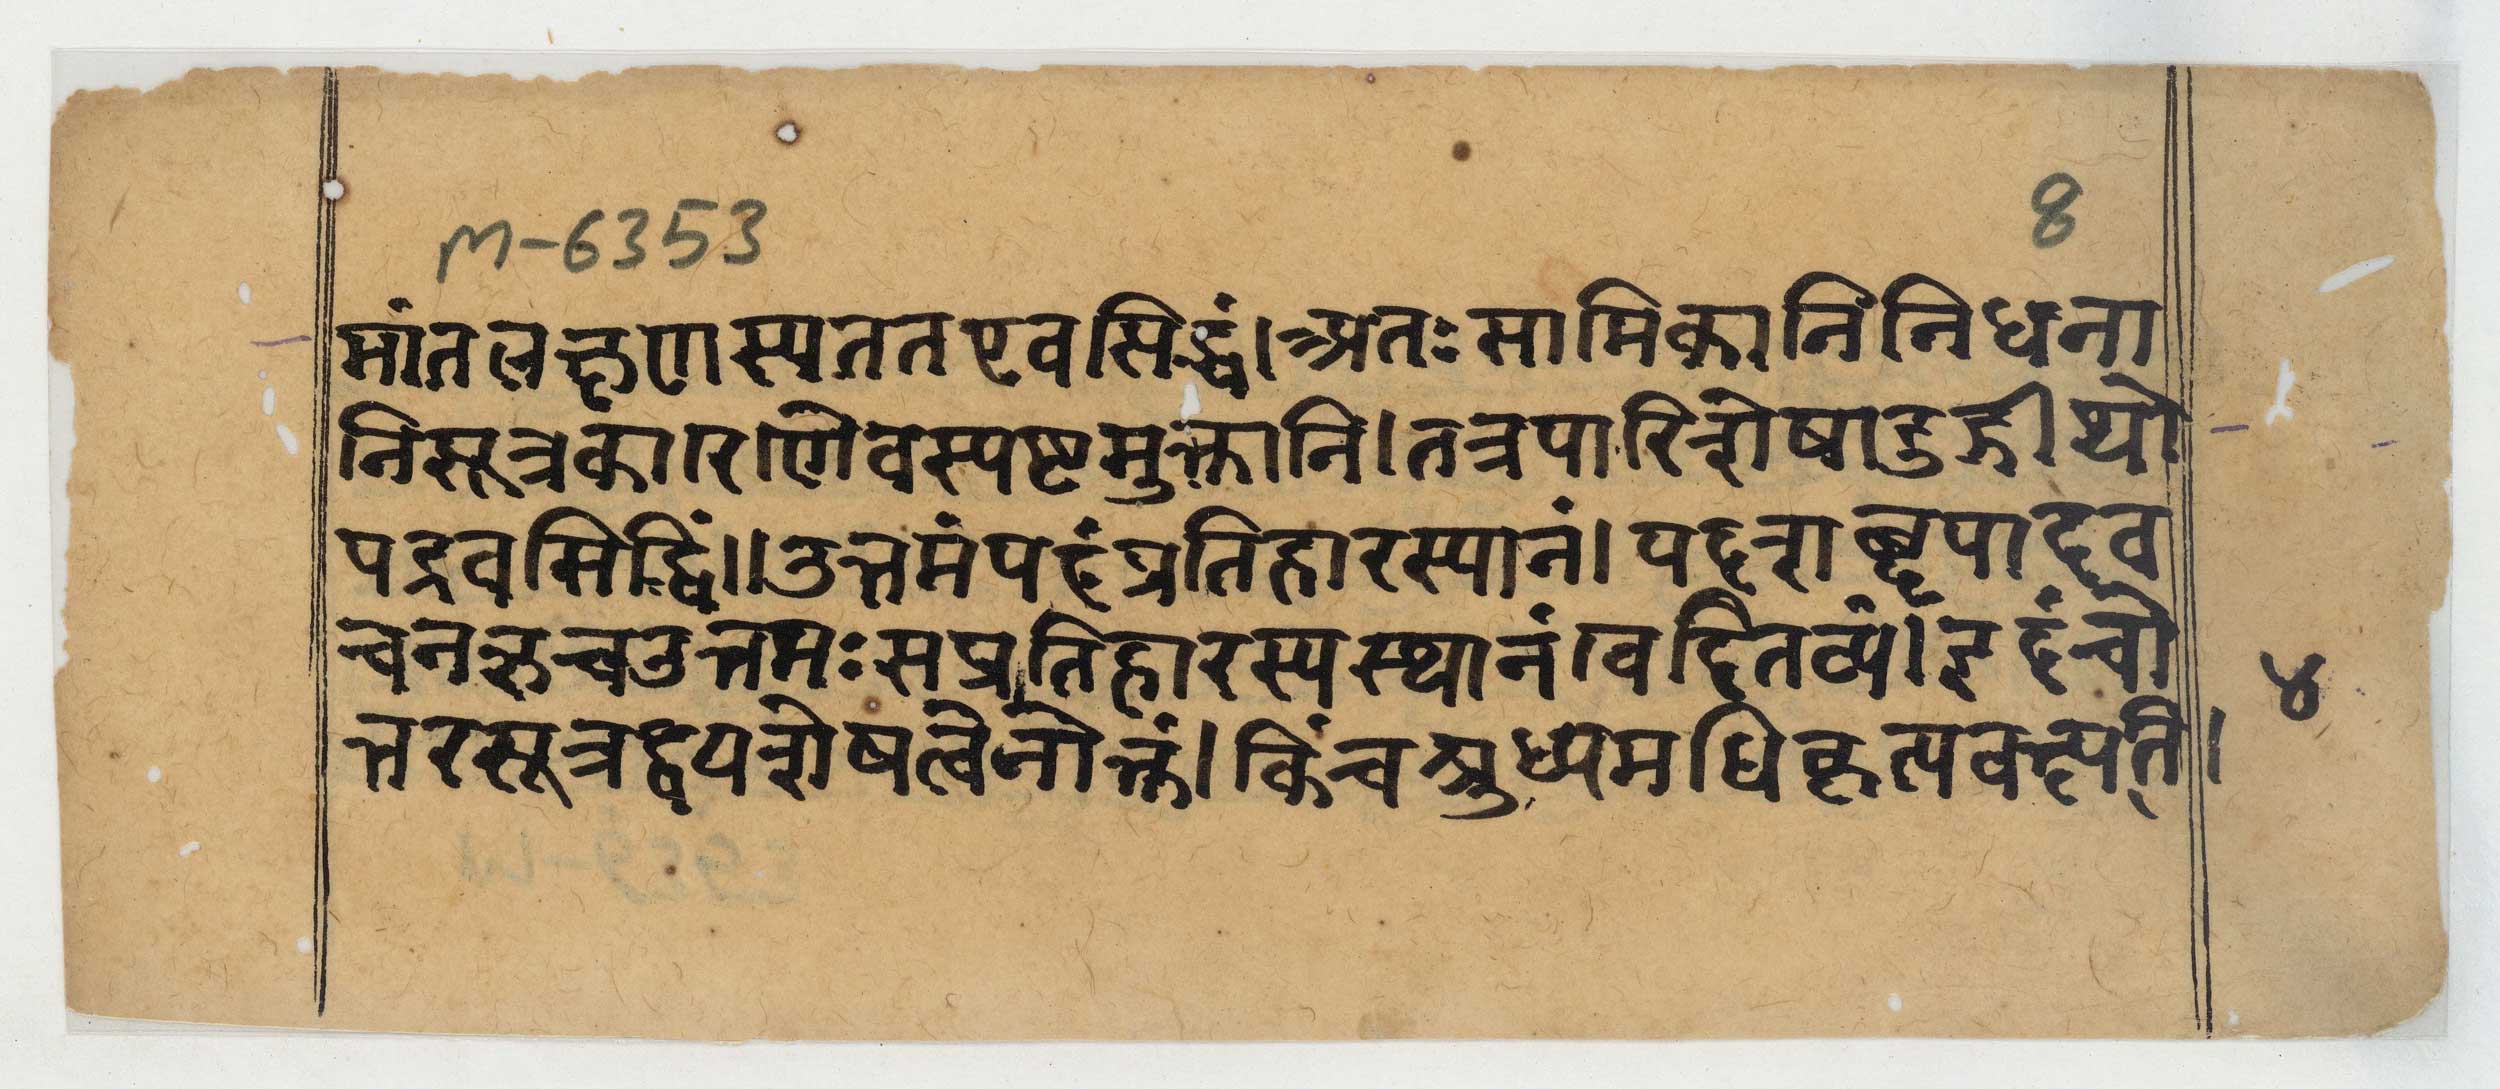 M-6353
8
मांतलक्षणस्यततएवसिद्धं।अतःसामिकानिनिधना
निसूत्रकारेणैवस्पष्टमुक्तानि।तत्रपारिशेषादुद्गीथो
पद्रवसिद्धिं॥उत्तमंपदंप्रतिहारस्थानं।पदशब्दपादव
चनऋचउत्तमःसप्रतिहारस्यस्थानंवेदितव्यं।इदंचो
त्तरसूत्रद्वयशेषत्वेनोक्तं।किंचश्रुध्यमधिकृत्यवक्ष्यति।
४